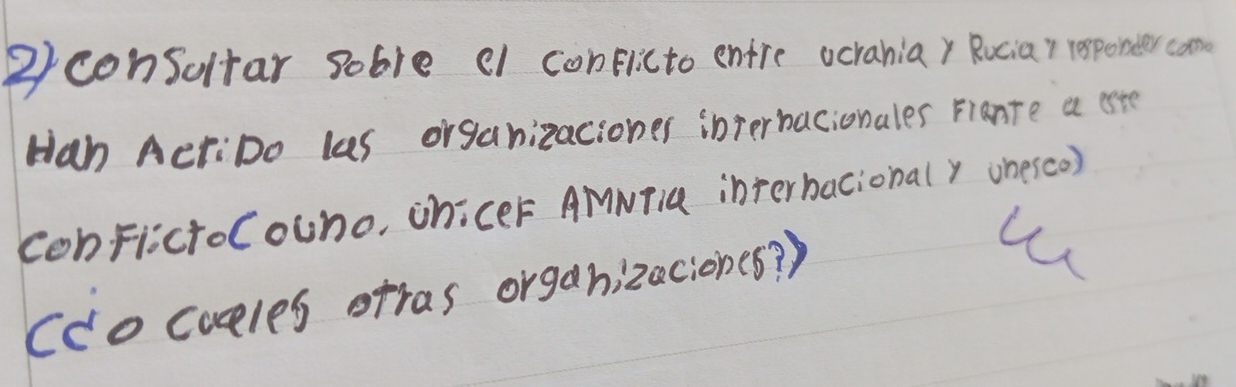 2) consultar sobre el conflicto entre ucrania y Rucia y responder como
Han Actido las organizaciones internacionales Frante a este
conflicto (ouno, unicef AMNTia internacional y unesco)
(¿o cuales otras organizaciones?)